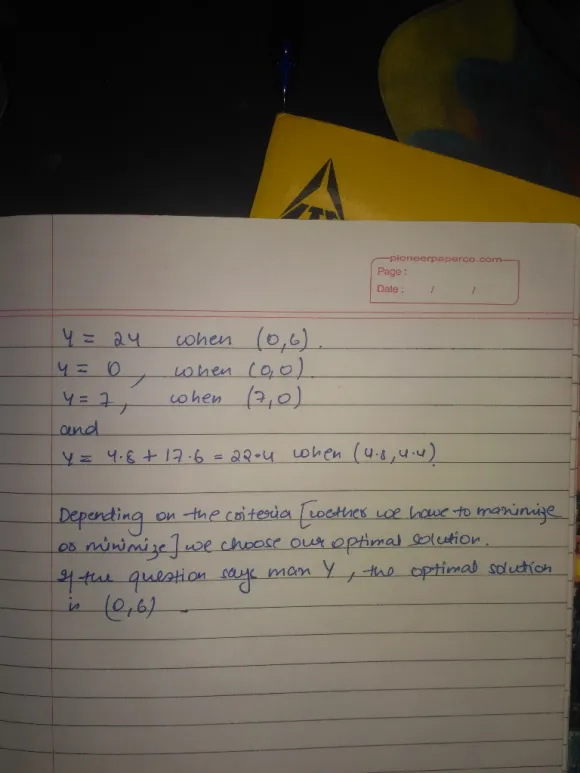 pioneerpaperco.com
Page :
Date : / /
Y = 24 when (0,6).
Y = 0, when (0,0).
Y = 7, when (7,0)
and
Y = 4.8 + 17.6 = 22.4 when (4.8, 4.4)
Depending on the criteria [wether we have to maximize
or minimize] we choose our optimal solution.
If the question says max Y, the optimal solution
is (0,6).